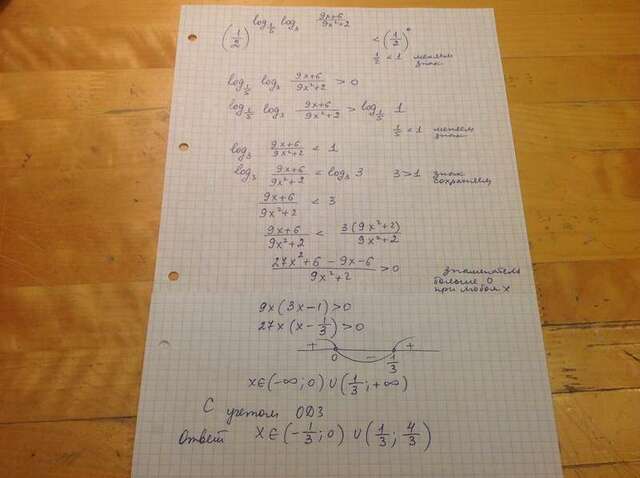 (1/2)^(log_{1/5} log_3 (9x+6)/(9x²+2)) < (1/2)^0
1/2 < 1 меняем
знак
log_{1/5} log_3 (9x+6)/(9x²+2) > 0
log_{1/5} log_3 (9x+6)/(9x²+2) > log_{1/5} 1
1/5 < 1 меняем
знак
log_3 (9x+6)/(9x²+2) < 1
log_3 (9x+6)/(9x²+2) < log_3 3 3>1 знак
сохраняем
(9x+6)/(9x²+2) < 3
(9x+6)/(9x²+2) < 3(9x²+2)/(9x²+2)
(27x²+6-9x-6)/(9x²+2) > 0 знаменатель
больше 0
при любом x
9x(3x-1)>0
27x(x-1/3)>0
+ 0 - 1/3 +
x∈(-∞;0)∪(1/3;+∞)
С учетом ОДЗ
Ответ x∈(-1/3;0)∪(1/3;4/3)